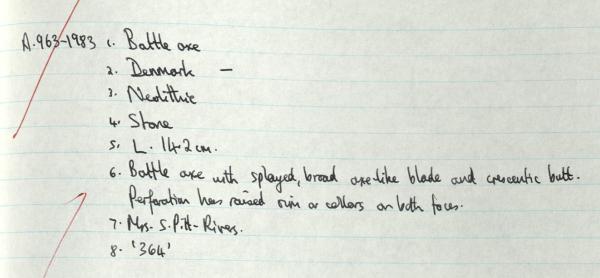 A.963-1983 1. Battle axe
2. Denmark –
3. Neolithic
4. Stone
5. L. 14.2 cm.
6. Battle axe with splayed, broad axe-like blade and crescentic butt.
Perforation has raised rim or collars on both faces.
7. Mrs. S. Pitt-Rivers.
8. '364'